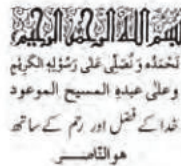 بسم الله الرحمن الرحيم
نحمده و نصلی علی رسوله الکریم
وعلی عبده المسیح الموعود
خدا کے فضل اور رحم کے ساتھ
هو الناصـــر